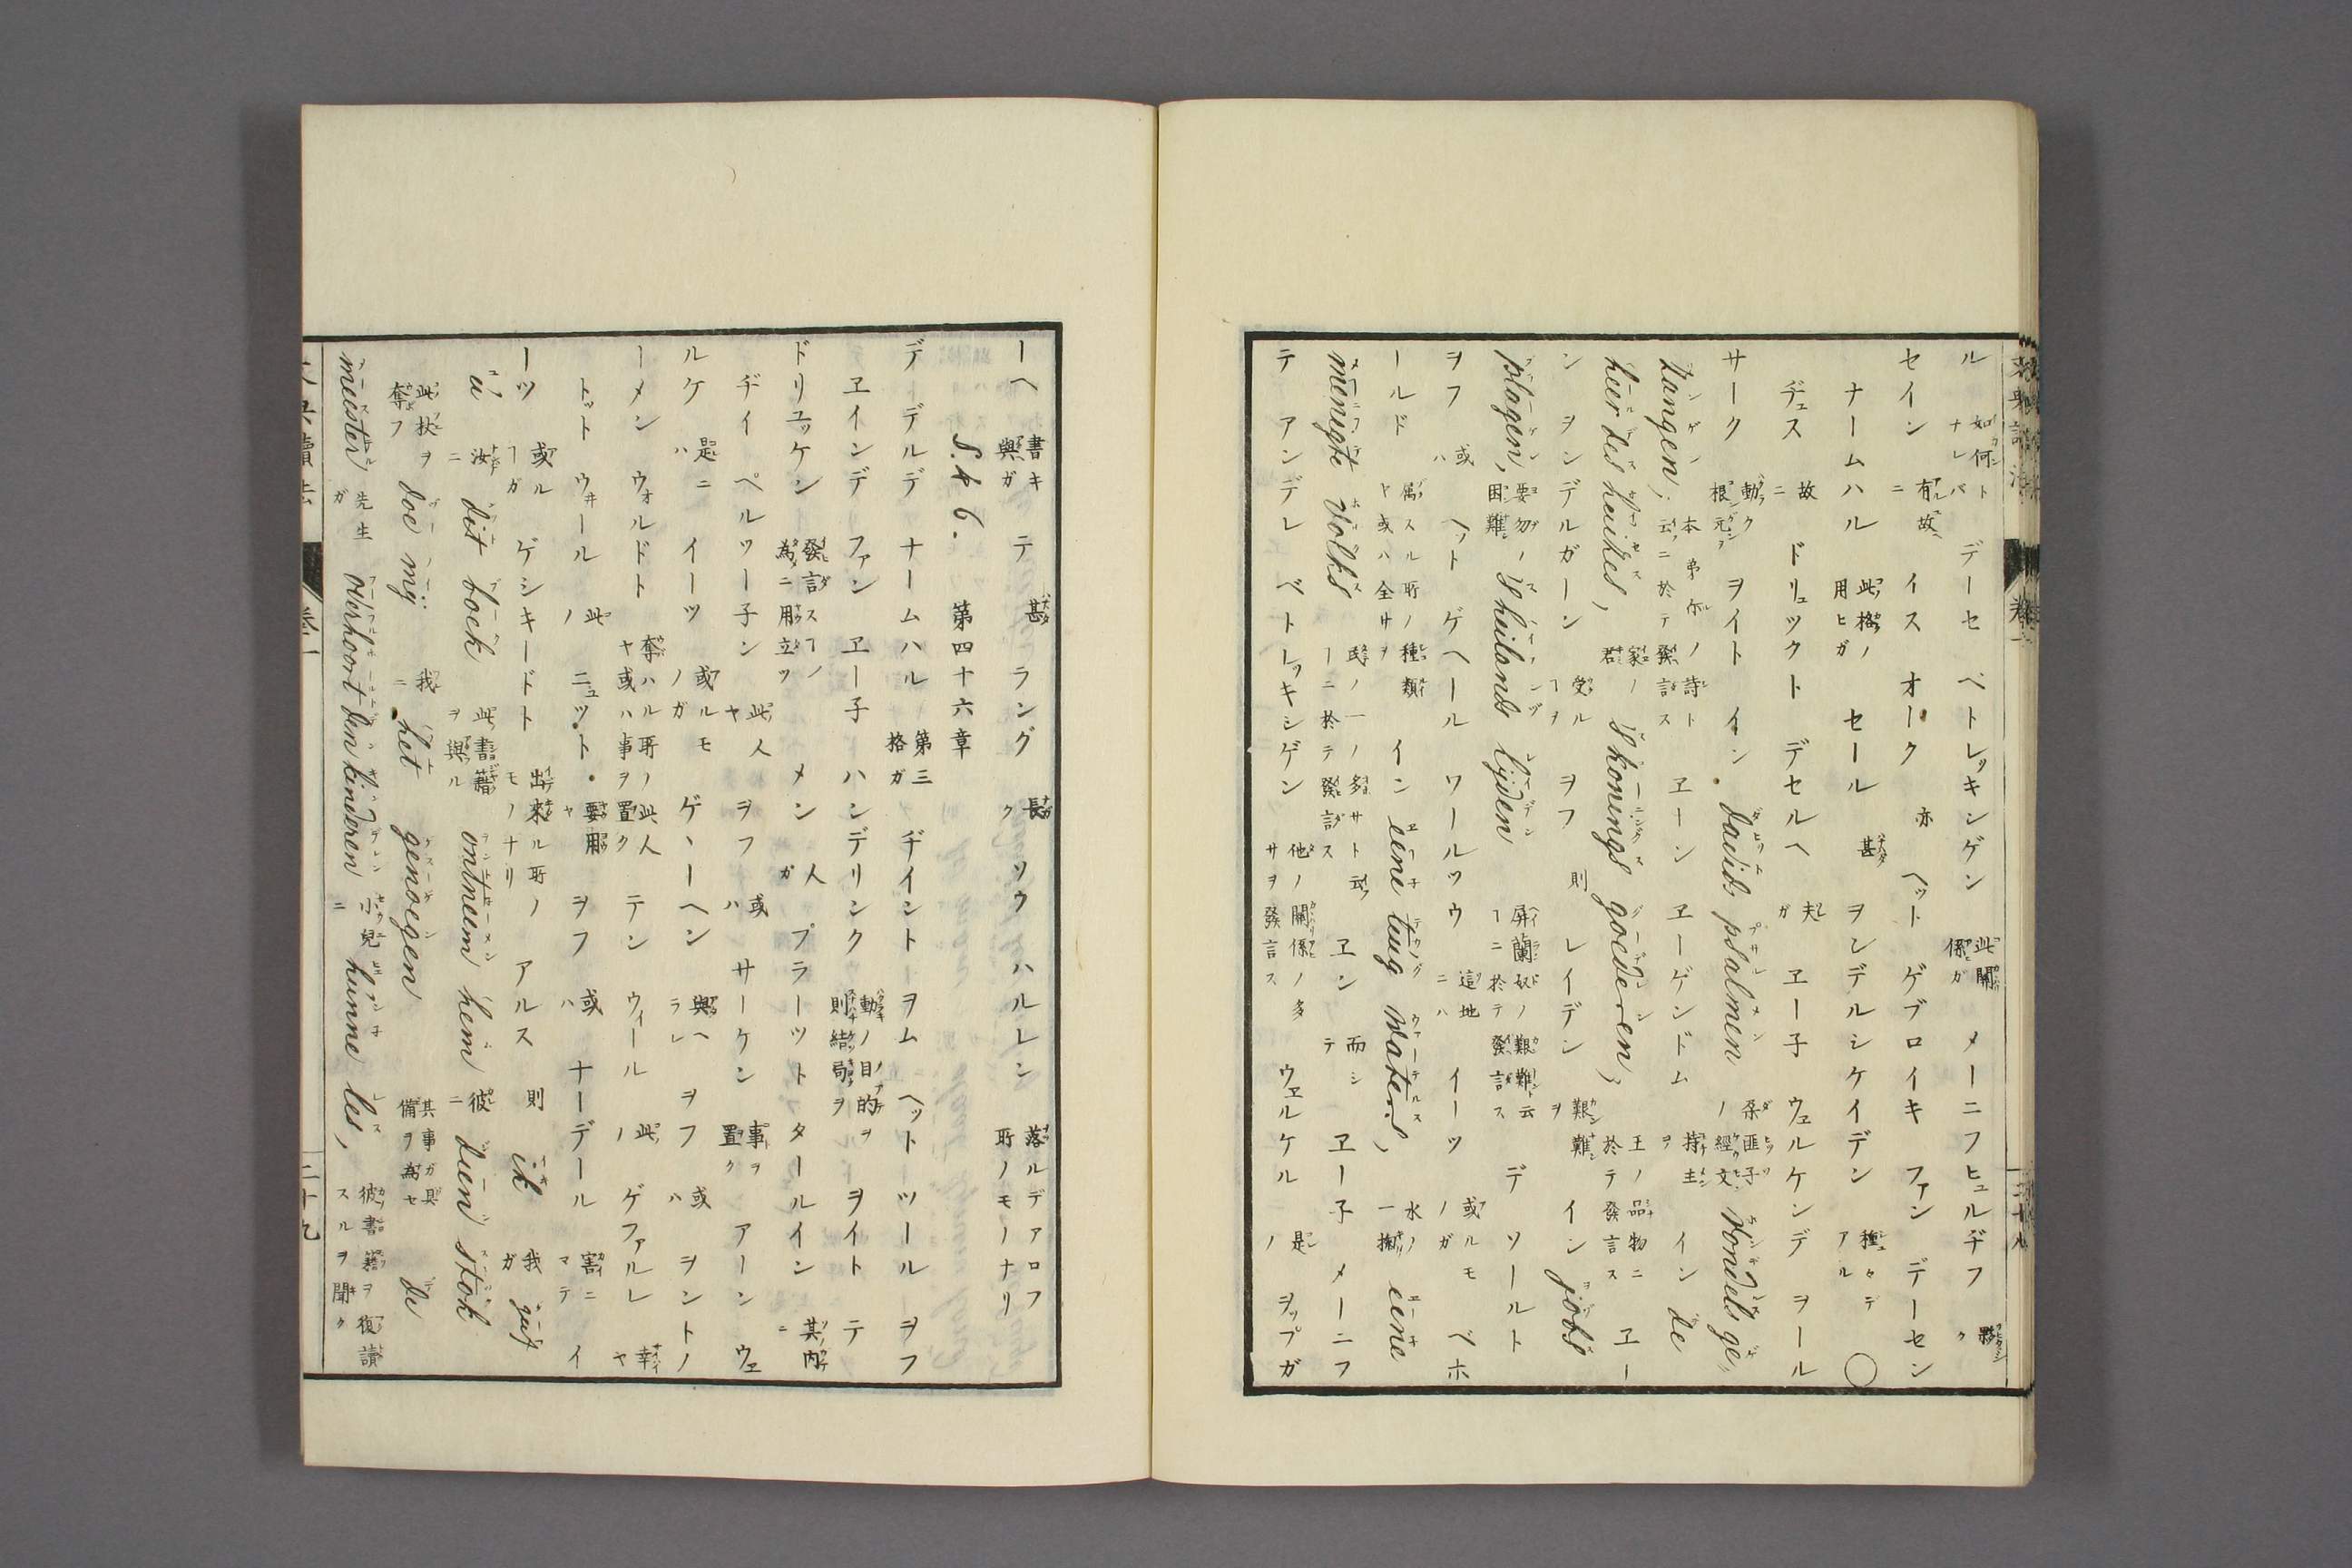 ル 如何トナレバ 有故ニ デーセ ベトレッキンゲン 此關係ガ メーニフヒュルヂフ 夥ク
セイン イス オーク 亦 ヘット ゲブロイキ ファン デーセン
ナームハル 此格ノ用ヒガ セール 甚 ヲンデルシケイデン 種々デアル ○
ヂュス 故ニ ドリュックト デセルヘ 夫ガ ヱー子 ウェルケンデ ヲール
サーク 動ク根元ヲ ヲイト イン davids psalmen ノ經文 vondels ge,
zangen, 本弟尓ノ詩ト云ニ於テ發言ス ヱーン ヱーゲンドム 持主ヲ イン de
heer des huikes, 家ノ君 's konings goederen, 王ノ品物ニ於テ發言ス ヱー
ン ヲンデルガーン 受ルヿヲ ヲフ 則 レイデン 艱難ヲ イン jobs
plagen, 要勿ノ困難 's heilands lijden 屏蘭奴ノ艱難ト云ヿニ於テ發言ス デ ソールト
ヲフ 或ハ ヘット ゲヘール ワールツウ 這地ニハ イーツ 或ルモノガ ベホ
ールド 屬スル所ノ種類ヤ或ハ全サヲ イン eene teug waters, 水ノ一掬 eene
menigte volks 民ノ一ノ多サト云ヿニ於テ發言ス ヱン 而シテ ヱー子 メーニフ
テ アンデレ ベトレッキシゲン 他ノ關係ノ多サヲ發言ス ウェルケル 是ノ ヲップガ
ーヘ 書キ與ガ テ 甚 ラング 長ク ソウ ハルレン 落ルデアロフ所ノモノナリ
§. 46. 第四十六章
デ デルデ ナームハル 第三格ガ ヂイント ヲム ヘット ツール ヲフ
ヱインデ ファン ヱー子 ハンデリンク 動ノ目的ヲ則結局ヲ ヲイト テ
ドリュッケン 發言スヿノ為ニ用立ツ メン 人ガ プラーツト タールイン 其内ニ
ヂイ ペルソー子ン 此人ヤ ヲフ 或ハ サーケン 事ヲ置ク アーン ウェ
ルケ 是ニハ イーツ 或ルモノガ ゲヽーヘン 與ヘラレ ヲフ 或ハ ヲントノ
ーメン ウォルドト 奪ハル所ノ此人ヤ或ハ事ヲ置ク テン ウィール 此ノ ゲファルレ 幸ヤ
トット ウヰール 此ノ ニュット 要用ヤ ヲフ 或ハ ナーデール 害ニマテ イ
ーツ 或ルヿガ ゲシキードト 出來ル所ノモノナリ アルス 則 ik 我ガ geef
u 汝ニ dit boek 此書籍ヲ與ル ontneem hem 彼ニ dien stok
此杖ヲ奪フ doe mij 我ニ het genoegen 其事ガ具備ヲ為セ de
meester 先生ガ overhoort den kinderen 小兒ニ hunne les, 彼書籍ヲ復讀スルヲ聞ク